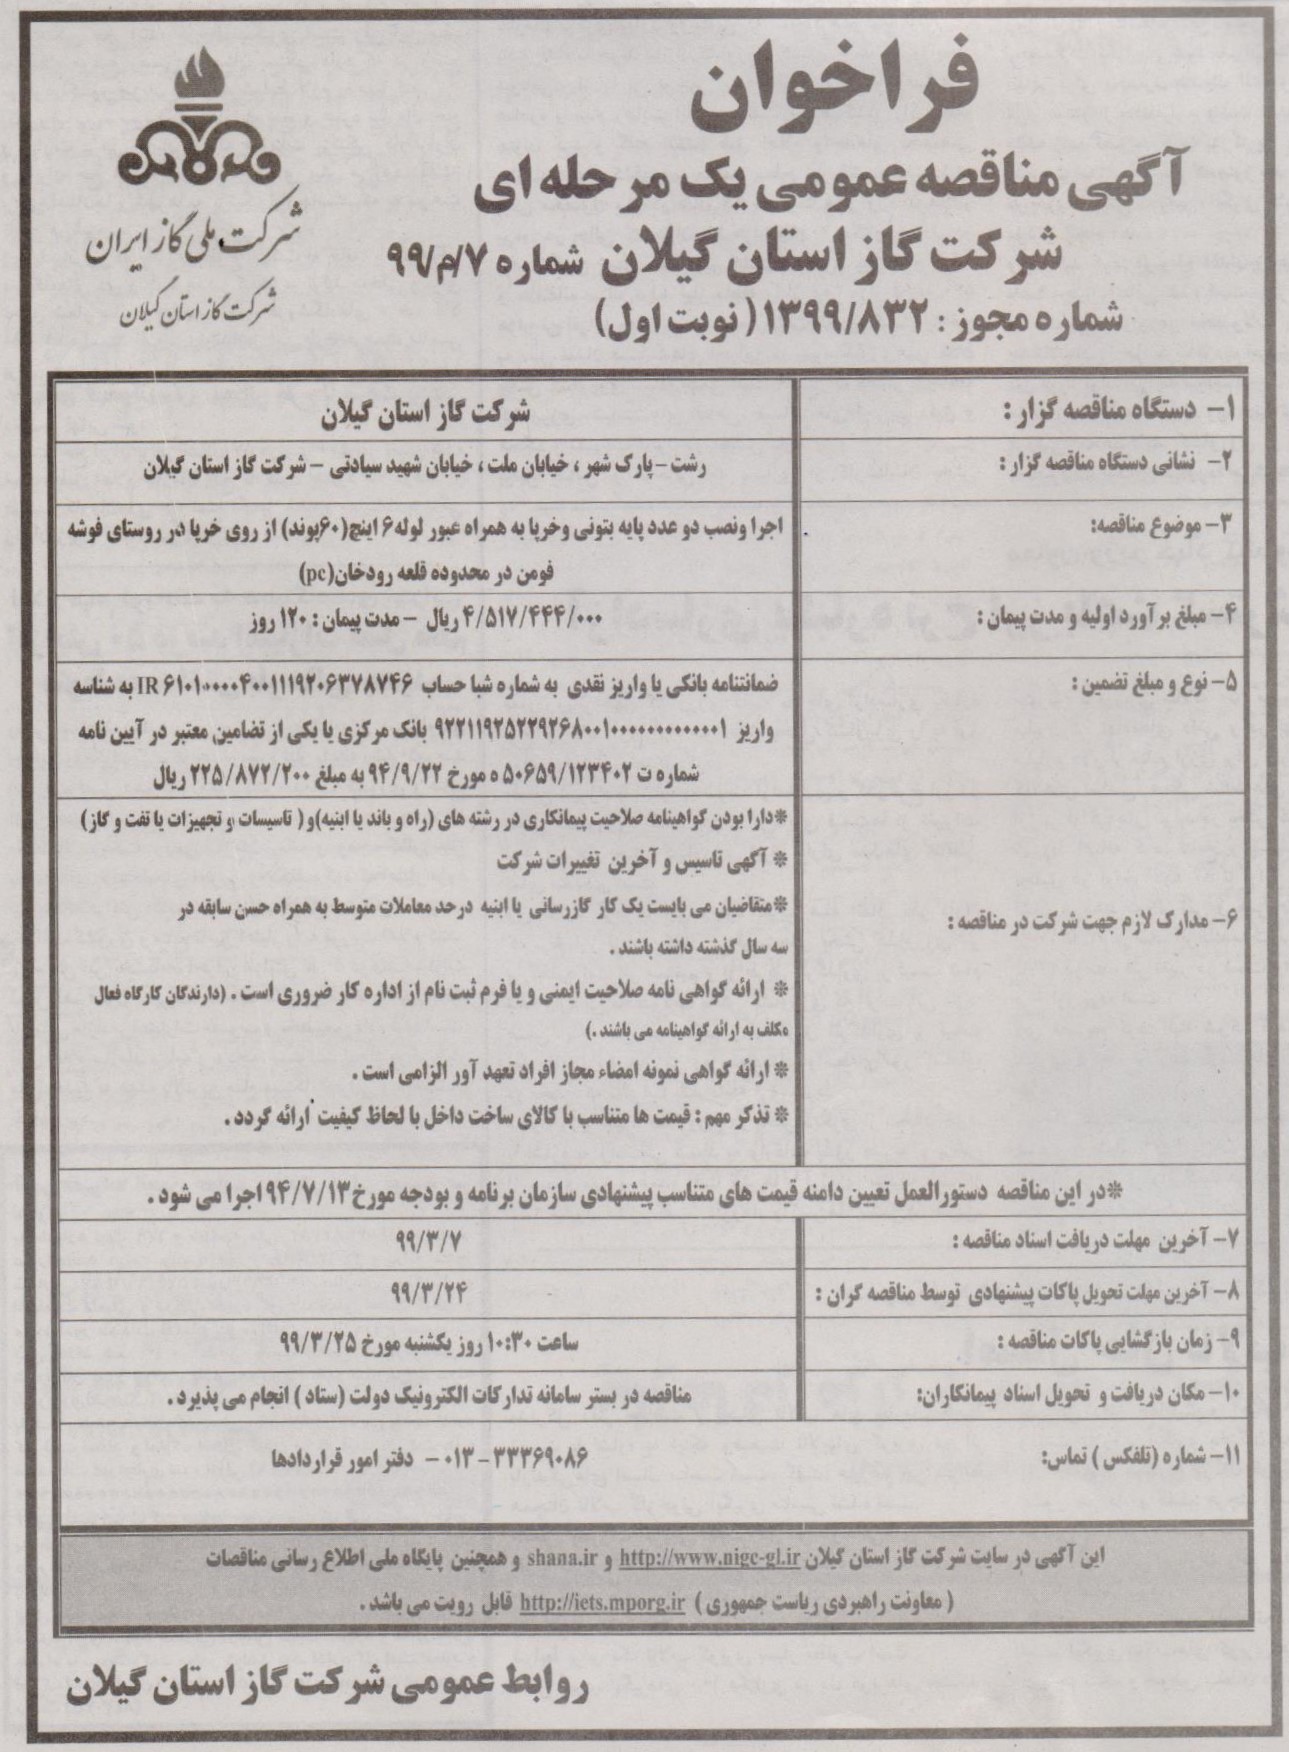 فراخوان
آگهی مناقصه عمومی یک مرحله ای
شرکت گاز استان گیلان شماره ۹۹/م/۷
شماره مجوز : ۱۳۹۹/۸۳۲ ( نوبت اول)
شرکت ملی گاز ایران
شرکت گاز استان گیلان
۱- دستگاه مناقصه گزار :
شرکت گاز استان گیلان
۲- نشانی دستگاه مناقصه گزار :
رشت – پارک شهر ، خیابان ملت ، خیابان شهید سیادتی – شرکت گاز استان گیلان
۳- موضوع مناقصه:
اجرا ونصب دو عدد پایه بتونی وخرپا به همراه عبور لوله ۶ اینچ(۶۰پوند) از روی خرپا در روستای فوشه
فومن در محدوده قلعه رودخان(pc)
۴- مبلغ برآورد اولیه و مدت پیمان :
۴/۵۱۷/۴۴۴/۰۰۰ ریال – مدت پیمان : ۱۲۰ روز
۵- نوع و مبلغ تضمین :
ضمانتنامه بانکی یا واریز نقدی به شماره شبا حساب IR ۶۱۰۱۰۰۰۰۴۰۰۱۱۱۹۲۰۶۳۷۸۷۴۶ به شناسه
واریز بانک مرکزی یا یکی از تضامین معتبر در آیین نامه
شماره ت ۵۰۶۵۹/۱۲۳۴۰۲ ه مورخ ۹۴/۹/۲۲ به مبلغ ۲۲۵/۸۷۲/۲۰۰ ریال
۶- مدارک لازم جهت شرکت در مناقصه :
*دارا بودن گواهینامه صلاحیت پیمانکاری در رشته های (راه و باند یا ابنیه)و ( تاسیسات و تجهیزات یا نفت و گاز)
* آگهی تاسیس و آخرین تغییرات شرکت
*متقاضیان می بایست یک کار گازرسانی یا ابنیه درحد معاملات متوسط به همراه حسن سابقه در
سه سال گذشته داشته باشند .
* ارائه گواهی نامه صلاحیت ایمنی و یا فرم ثبت نام از اداره کار ضروری است . (دارندگان کارگاه فعال
مکلف به ارائه گواهینامه می باشند .)
* ارائه گواهی نمونه امضاء مجاز افراد تعهد آور الزامی است .
* تذکر مهم : قیمت ها متناسب با کالای ساخت داخل با لحاظ کیفیت ارائه گردد .
*در این مناقصه دستورالعمل تعیین دامنه قیمت های متناسب پیشنهادی سازمان برنامه و بودجه مورخ ۹۴/۷/۱۳ اجرا می شود .
۷- آخرین مهلت دریافت اسناد مناقصه :
۹۹/۳/۷
۸- آخرین مهلت تحویل پاکات پیشنهادی توسط مناقصه گران :
۹۹/۳/۲۴
۹- زمان بازگشایی پاکات مناقصه :
ساعت ۱۰:۳۰ روز یکشنبه مورخ ۹۹/۳/۲۵
۱۰- مکان دریافت و تحویل اسناد پیمانکاران:
مناقصه در بستر سامانه تدارکات الکترونیک دولت (ستاد ) انجام می پذیرد .
۱۱- شماره (تلفکس ) تماس:
۰۱۳ – ۳۳۳۶۹۰۸۶ – دفتر امور قراردادها
این آگهی در سایت شرکت گاز استان گیلان http://www.nigc-gl.ir و shana.ir و همچنین پایگاه ملی اطلاع رسانی مناقصات
( معاونت راهبردی ریاست جمهوری ) http://iets.mporg.ir قابل رویت می باشد .
روابط عمومی شرکت گاز استان گیلان